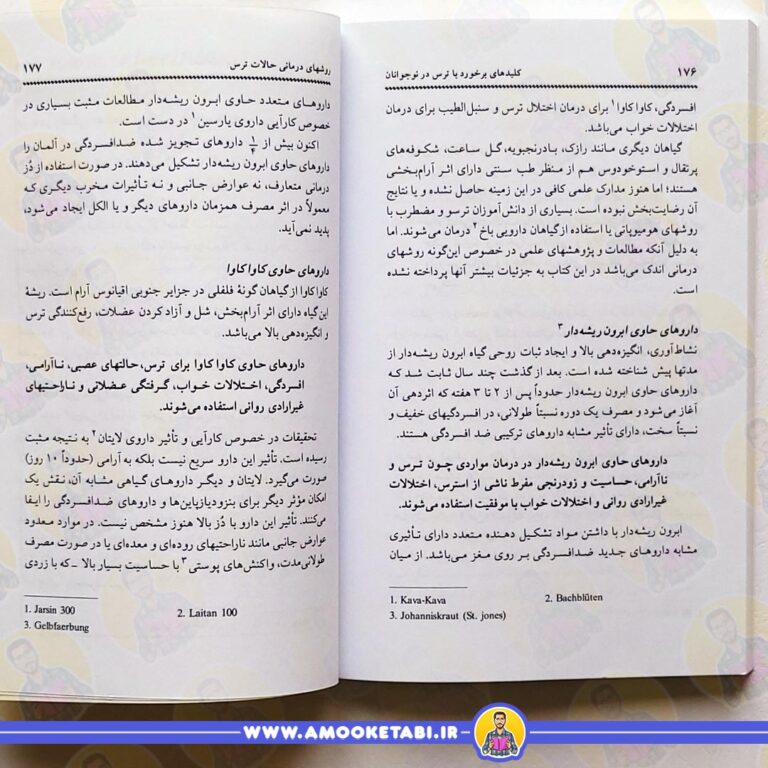 ۱۷۶ کلیدهای برخورد با ترس در نوجوانان
افسردگی، کاوا کاوا ۱ برای درمان اختلال ترس و سنبل‌الطیب برای درمان
اختلالات خواب می‌باشد.
گیاهان دیگری مانند رازک، بادرنجبویه، گل ساعت، شکوفه‌های
پرتقال و استوخودوس هم از منظر طب سنتی دارای اثر آرام‌بخشی
هستند؛ اما هنوز مدارک علمی کافی در این زمینه حاصل نشده و یا نتایج
آن رضایت‌بخش نبوده است. بسیاری از دانش‌آموزان ترسو و مضطرب با
روشهای هومیوپاتی یا استفاده از گیاهان دارویی باخ ۲ درمان می‌شوند. اما
به دلیل آنکه مطالعات و پژوهشهای علمی در خصوص این‌گونه روشهای
درمانی اندک می‌باشد در این کتاب به جزئیات بیشتر آنها پرداخته نشده
است.
داروهای حاوی ابرون ریشه‌دار ۳
نشاط‌آوری، انگیزه‌دهی بالا و ایجاد ثبات روحی گیاه ابرون ریشه‌دار از
مدتها پیش شناخته شده است. بعد از گذشت چند سال ثابت شد که
داروهای حاوی ابرون ریشه‌دار حدوداً پس از ۲ تا ۳ هفته که اثردهی آن
آغاز می‌شود و مصرف یک دوره نسبتاً طولانی، در افسردگیهای خفیف و
نسبتاً سخت، دارای تأثیر مشابه داروهای ترکیبی ضد افسردگی هستند.
داروهای حاوی ابرون ریشه‌دار در درمان مواردی چون ترس و
ناآرامی، حساسیت و زودرنجی مفرط ناشی از استرس، اختلالات
غیرارادی روانی و اختلالات خواب با موفقیت استفاده می‌شوند.
ابرون ریشه‌دار با داشتن مواد تشکیل دهنده متعدد دارای تأثیری
مشابه داروهای جدید ضدافسردگی بر روی مغز می‌باشد. از میان
1. Kava-Kava 2. Bachblüten
3. Johanniskraut (St. jones)
روشهای درمانی حالات ترس ۱۷۷
داروهای متعدد حاوی ابرون ریشه‌دار مطالعات مثبت بسیاری در
خصوص کارآیی داروی یارسین ۱ در دست است.
اکنون بیش از ۱/۴ داروهای تجویز شده ضدافسردگی در آلمان را
داروهای حاوی ابرون ریشه‌دار تشکیل می‌دهند. در صورت استفاده از دُز
درمانی متعارف، نه عوارض جانبی و نه تأثیرات مخرب دیگری که
معمولاً در اثر مصرف همزمان داروهای دیگر و یا الکل ایجاد می‌شود،
پدید نمی‌آید.
داروهای حاوی کاوا کاوا
کاوا کاوا از گیاهان گونهٔ فلفلی در جزایر جنوبی اقیانوس آرام است. ریشهٔ
این گیاه دارای اثر آرام‌بخش، شل و آزاد کردن عضلات، رفع‌کنندگی ترس
و انگیزه‌دهی بالا می‌باشد.
داروهای حاوی کاوا کاوا برای ترس، حالتهای عصبی، ناآرامی،
افسردگی، اختلالات خواب، گرفتگی عضلانی و ناراحتیهای
غیرارادی روانی استفاده می‌شوند.
تحقیقات در خصوص کارآیی و تأثیر داروی لایتان ۲ به نتیجه مثبت
رسیده است. تأثیر این دارو سریع نیست بلکه به آرامی (حدوداً ۱۰ روز)
صورت می‌گیرد. لایتان و دیگر داروهای گیاهی مشابه آن، نقش یک
امکان مؤثر دیگر برای بنزودیازپاین‌ها و داروهای ضدافسردگی را ایفا
می‌کنند. تأثیر این دارو با دُز بالا هنوز مشخص نیست. در موارد معدود
عوارض جانبی مانند ناراحتیهای روده‌ای و معده‌ای یا در صورت مصرف
طولانی‌مدت، واکنش‌های پوستی ۳ با حساسیت بسیار بالا -که با زردی
1. Jarsin 300 2. Laitan 100
3. Gelbfaerbung
WWW.AMOOKETABI.IR